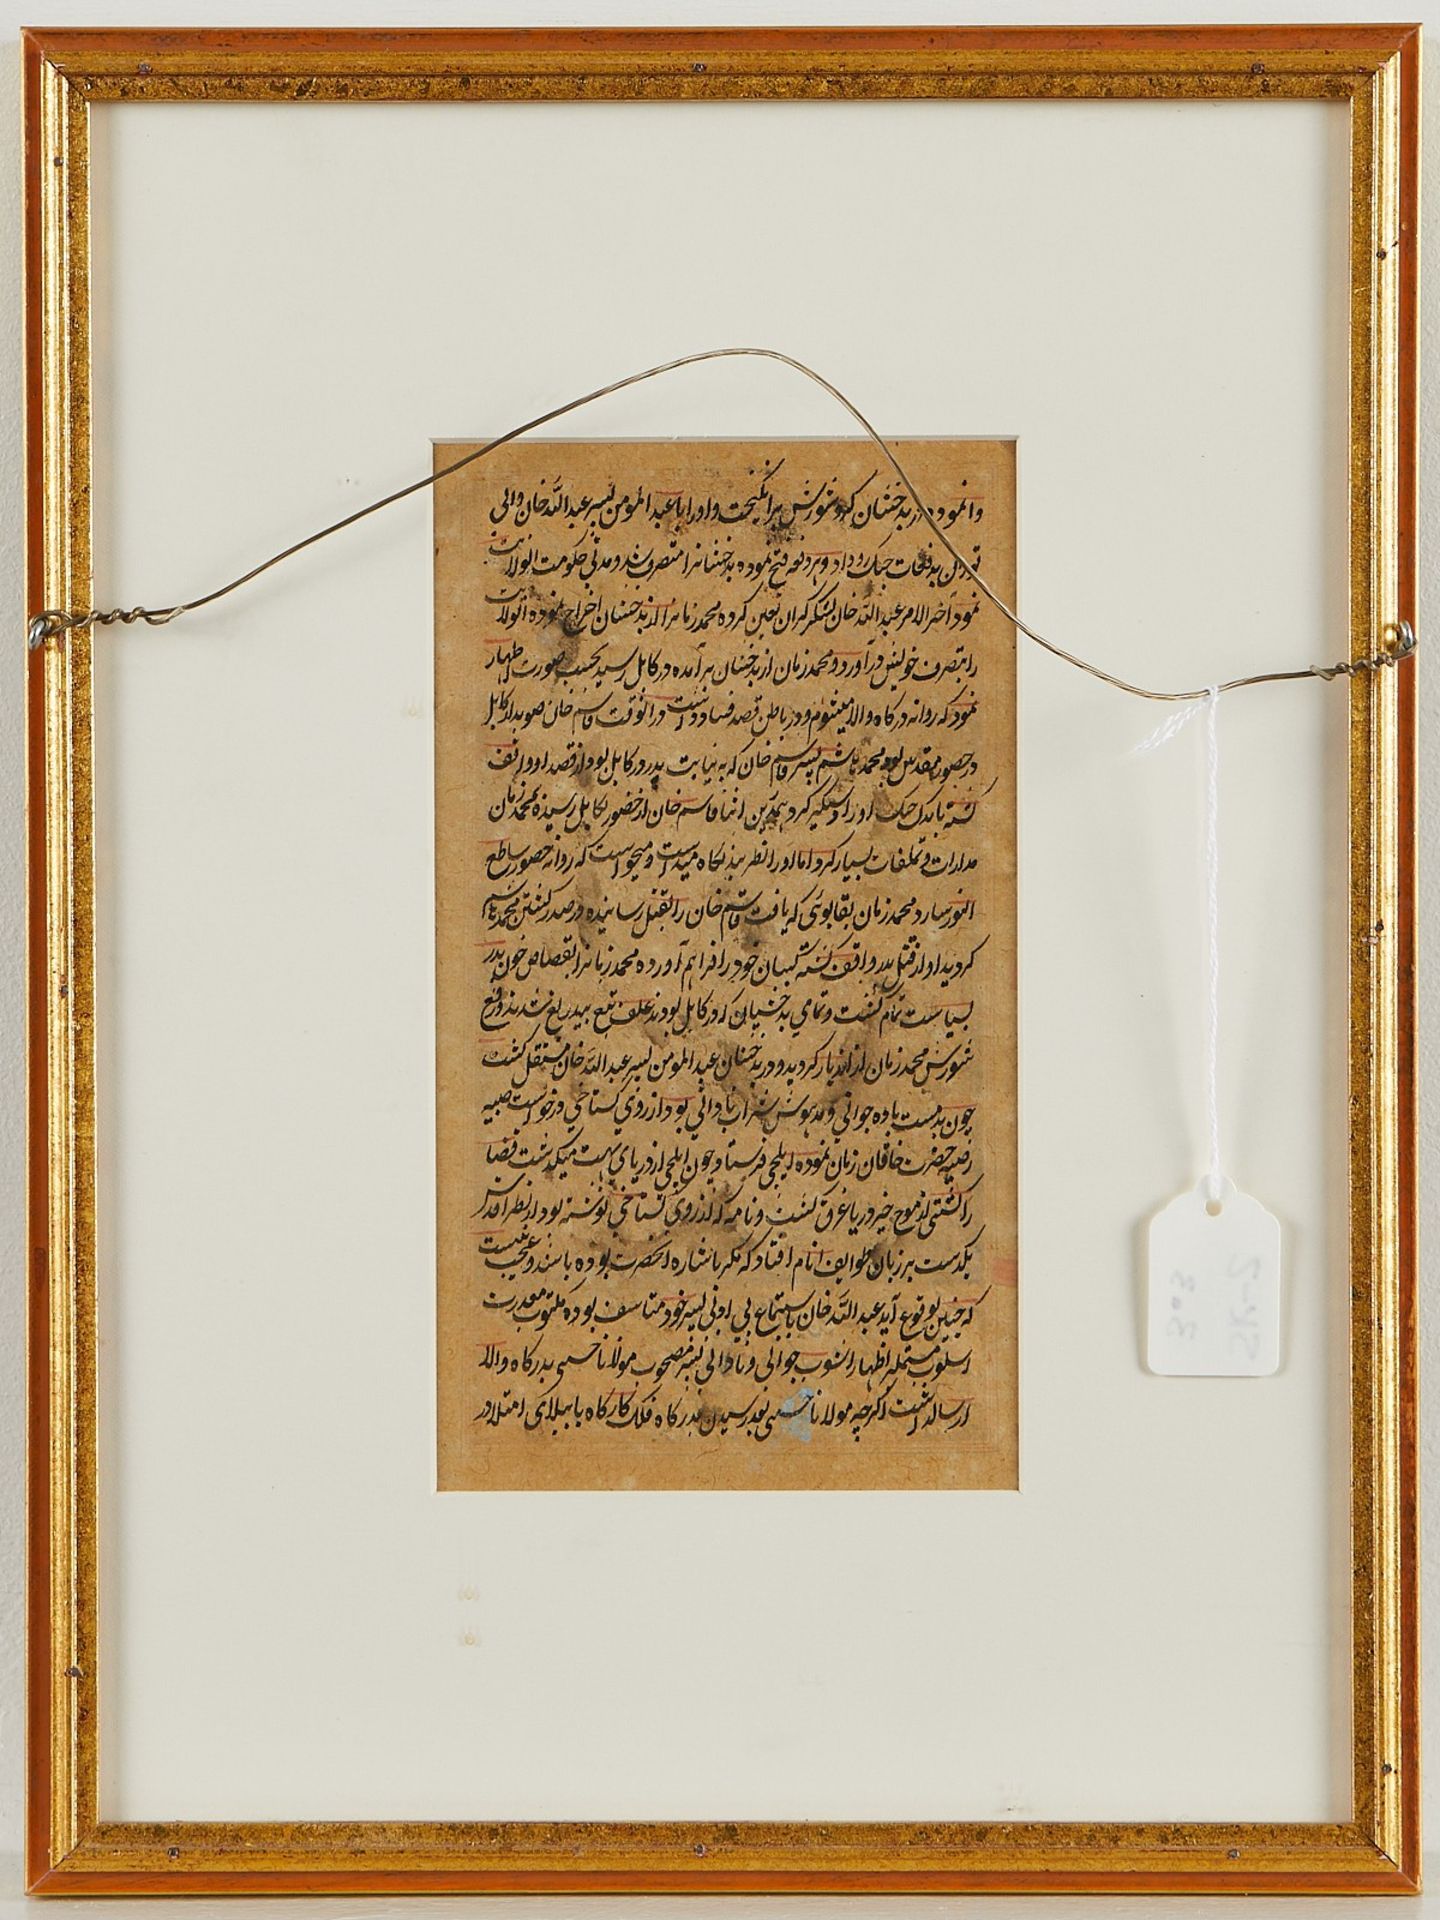 وانموده در بدخشان گرد شورش برانگیخت و اورا با عبد المومن پسر عبد الله خان والی
توران بدفعات جنک روداد و هر دفعه فتح نموده بدخشانرا متصرف شد و مدتی حکومت انولایت
نمود آخر الامر عبد الله خان لشکر گران تعین کرده محمد زمانرا از بدخشان اخراج نموده انولایت
را بتصرف خویش در آورد و محمد زمان از بدخشان برآمده در کابل رسید بحسب صورت اظهار
نمود که روانه درکاه والا میشوم و در باطن قصد فساد داشت درانوقت قاسم خان صوبدار کابل
در حضور مقدس بود محمد هاشم پسر قاسم خان که به نیابت پدر در کابل بود از قصد او واقف
کشته باندک جنک اورا دستگیر کرد همدرین اثنا قاسم خان از حضور بکابل رسیده بمحمد زمان
مدارات و تکلفات بسیار کرد اما اورا نظربند نکاه میداشت و میخواست که روانه حضور ساطع
النور سازد محمد زمان بقابوئی که یافت قاسم خان را بقتل رسانیده در صدد کشتن محمد هاشم
کردید او از قتل پدر واقف کشته کسان خود را فراهم آورده محمد زمانرا بقصاص خون پدر
بسیاست تمام کشت و تمامی بدخشیان که در کابل بودند علف تیغ بیدریغ شدند و رفع
شورش محمد زمان از اندیار کردید و در بدخشان عبد المومن پسر عبد الله خان مستقل کشت
چون بدمست باده جوانی و مدهوش شراب نادانی بود از روی کستاخی درخواست صبیه
رضیه حضرت خاقان زمان نموده ایلچی فرستاد چون ایلچی از دریای بهت میکذشت قضا
را کشتی از موج خیز دریا غرق کشت و نامه که از روی کستاخی نوشته بود از نظر اقدس
نکذشت بر زبان طوایف انام افتاد که مکر باشاره انحضرت بوده باشد و عجب نیست
که چنین بوقوع آید عبد الله خان باستماع بی ادبی پسر خود متاسف بوده مکتوب معذرت
اسلوب مشتمل اظهار اشوب جوانی و نادانی پسر مصحوب مولانا حسینی بدرکاه والا
ارسالداشت اکرچه مولانا حسینی بعد رسیدن بدرکاه فلک کارکاه بابتلای امتلا در
303